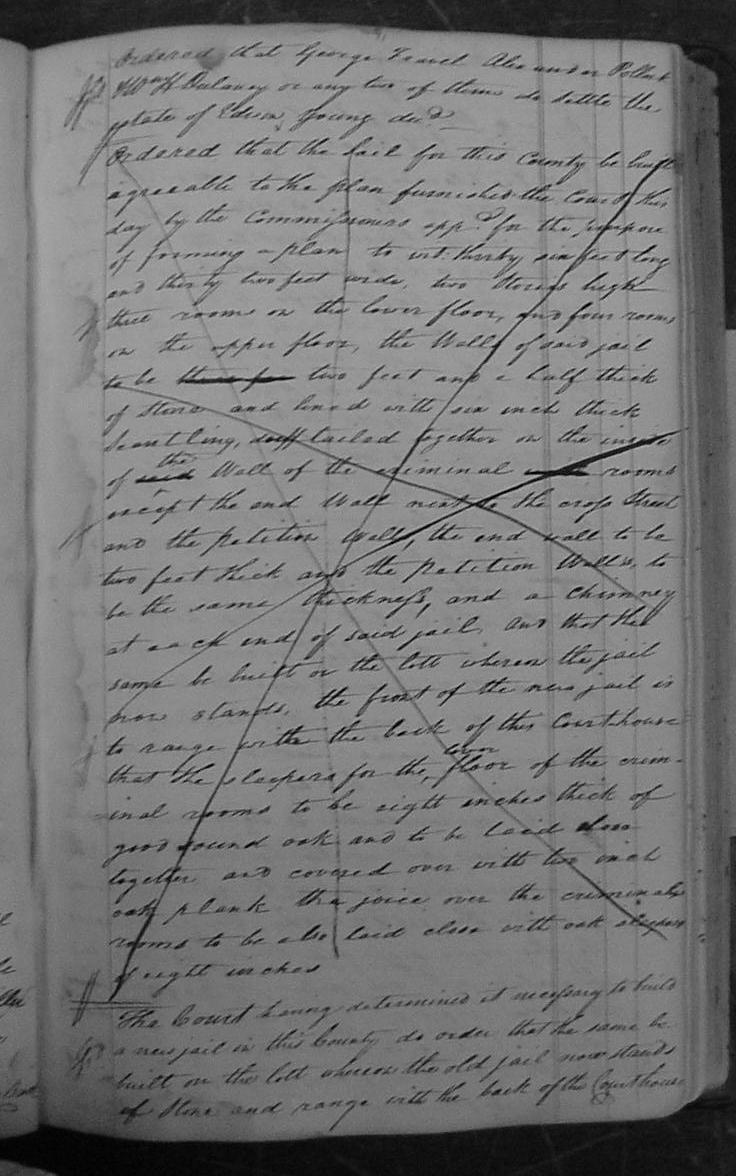 Ordered that George Travel Alexander Pollock
Wm H Dulaney or any two of them do settle the
estate of Young decd
Ordered that the Jail for this County be built
agreeable to the plan furnished the Court this
day by the Commissioners appd. for the purpose
of forming a plan to wit. thirty six feet long
and thirty two feet wide, two stories high
three rooms on the lower floor, and four rooms
on the upper floor, the Walls of said jail
to be two feet and a half thick
of stone and lined with six inch thick
Scantling, duff tailed together on the inside
of said the Wall of the criminal rooms
except the end Wall next to the cross Street
and the petition Walls, the end wall to be
two feet thick and the petition Walls, to
be the same thickness, and a Chimney
at each end of said jail, and that the
same be built on the lott whereon the jail
now stands, the front of the new jail is
to range with the back of this Courthouse
that the sleepers for the lower floor of the crim-
inal rooms to be eight inches thick of
good sound oak and to be laid close
together and covered over with two inch
oak plank the joice over the criminals
rooms to be also laid close with oak sleepers
of eight inches
The Court having determined it necessary to build
a new jail in this County do order that the same be
built on the lott whereon the old jail now stands
of stone and range with the back of the Courthouse